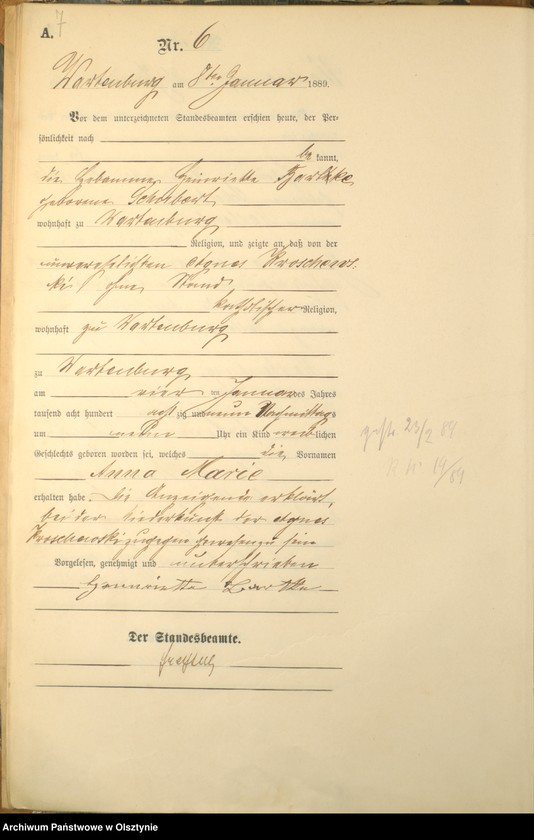 A. 7
Nr. 6
Wartenburg am 8ten Januar 1889.
Vor dem unterzeichneten Standesbeamten erschien heute, der Per-
sönlichkeit nach
be kannt,
die Hebamme Henriette Bartke,
geborene Schubert
wohnhaft zu Wartenburg
Religion, und zeigte an, daß von der
unverehelichten Agnes Kroschews-
ki, ohne Stand,
katholischer Religion,
wohnhaft zu Wartenburg
zu Wartenburg
am vier ten Januar des Jahres
tausend acht hundert acht zig und neun Nachmittags
um neun Uhr ein Kind weiblichen
Geschlechts geboren worden sei, welches die Vornamen
Anna Marie
erhalten habe. Die Anzeigende erklärt,
bei der Niederkunft der Agnes
zugegen gewesen zu sein
Vorgelesen, genehmigt und unterschrieben
Henriette Bartke
Der Standesbeamte.
gest. 23/2 89
N 19/89
Archiwum Państwowe w Olsztynie